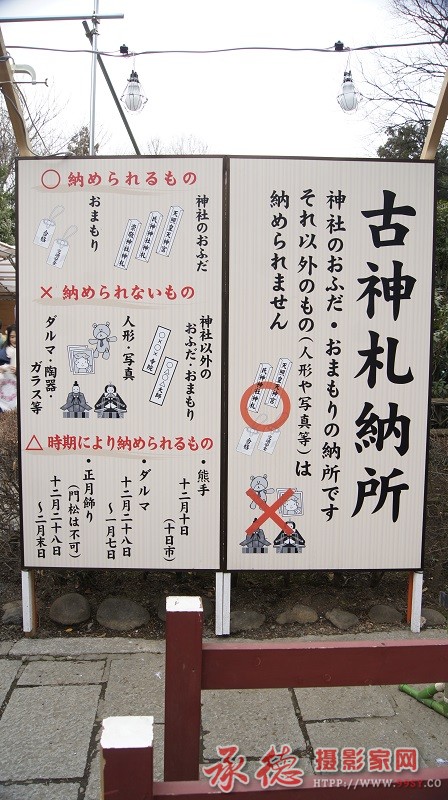 古神札納所
神社のおふだ・おまもりの納所です
それ以外のもの(人形や写真等)は
納められません
天照皇大神宮
氏神神社神札
合格
○ 納められるもの
神社のおふだ
天照皇大神宮
氏神神社神札
崇敬神社神札
おまもり
合格
× 納められないもの
神社以外の
おふだ・おまもり
人形・写真
ダルマ・陶器・
ガラス等
△ 時期により納められるもの
・熊手
十二月十日
(十日市)
・ダルマ
十二月二十八日
〜一月七日
・正月飾り
(門松は不可)
十二月二十八日
〜二月末日
承德摄影家网
HTTP://WWW.99SY.CO